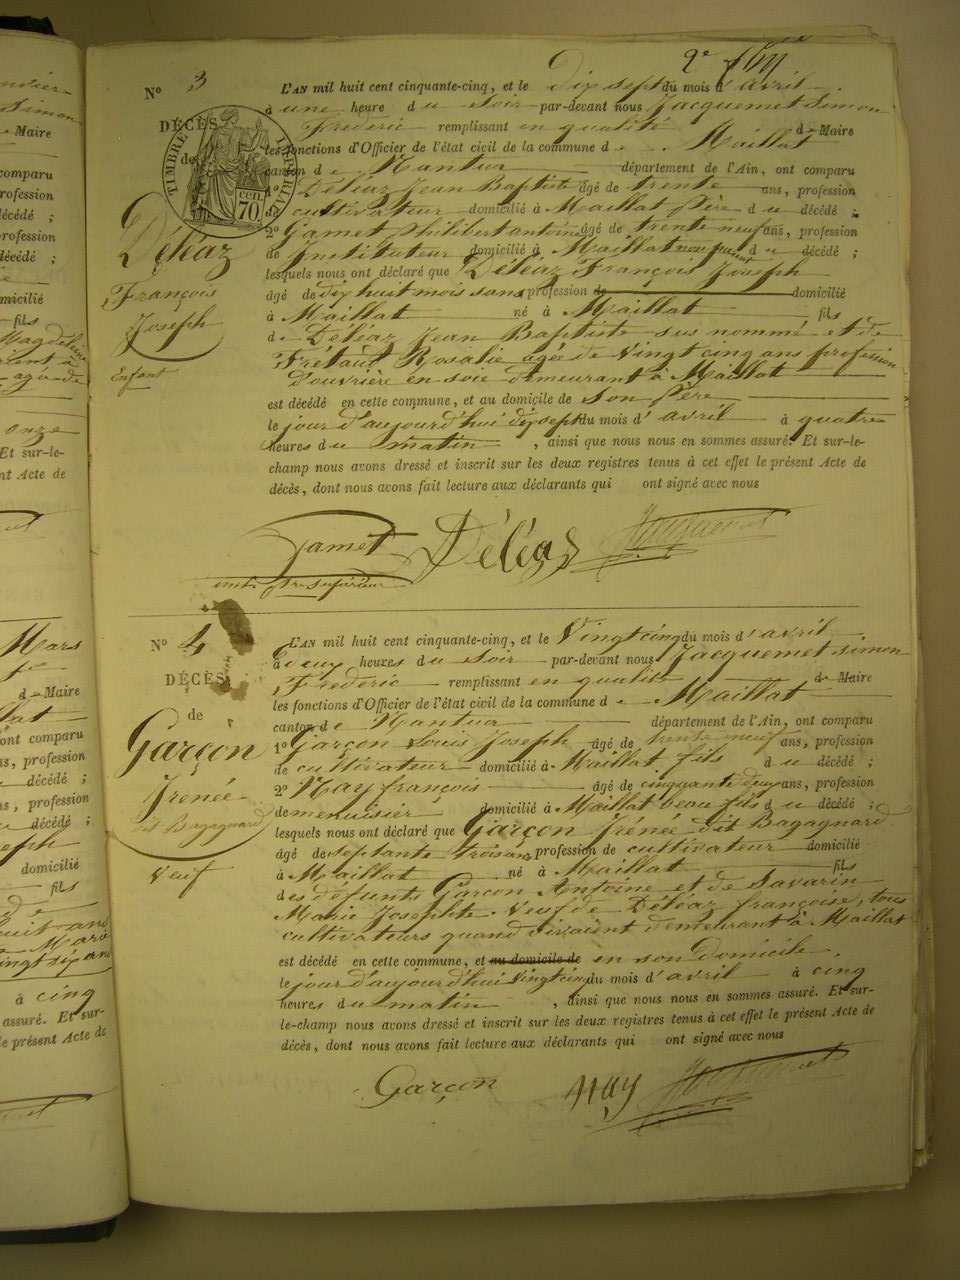 2e fol
N° 3
DÉCÈS
de
TIMBRE IMPÉRIAL
70 cen.
Déléaz
François
Joseph
Enfant
L'AN mil huit cent cinquante-cinq, et le Dix sept du mois d'avril
à une heure du soir par-devant nous Jacquemet Simon
Frederic remplissant en qualité de Maire
les fonctions d'Officier de l'état civil de la commune de Maillat
canton de Nantua département de l'Ain, ont comparu
1° Déléaz Jean Baptiste âgé de trente ans, profession
cultivateur domicilié à Maillat Père du décédé ;
2° Gamet Philibert antoine âgé de trente neuf ans, profession
de Instituteur domicilié à Maillat non parent du décédé ;
lesquels nous ont déclaré que Déléaz François Joseph
âgé de dix huit mois sans profession de domicilié
à Maillat né à Maillat fils
de Déléaz Jean Baptiste sus nommé et de
Frétaud Rosalie agée de Vingt cinq ans profession
D'ouvrière en soie demeurant à Maillat
est décédé en cette commune, et au domicile de Son Père
le jour d'aujourd'hui dix sept du mois d'avril à quatre
heures du matin , ainsi que nous nous en sommes assuré. Et sur-le-
champ nous avons dressé et inscrit sur les deux registres tenus à cet effet le présent Acte de
décès, dont nous avons fait lecture aux déclarants qui ont signé avec nous
Gamet Déléas Jacquemet
inst. pre supérieur
N° 4
DÉCÈS
de
Garçon
Irénée
dit Bagagnard
Veuf
L'AN mil huit cent cinquante-cinq, et le Vingt cinq du mois d'avril
à deux heures du soir par-devant nous Jacquemet simon
Frederic remplissant en qualité de Maire
les fonctions d'Officier de l'état civil de la commune de Maillat
canton de Nantua département de l'Ain, ont comparu
1° Garçon Louis Joseph âgé de trente neuf ans, profession
de cultivateur domicilié à Maillat fils du décédé ;
2° Nay françois âgé de cinquante deux ans, profession
de menuisier domicilié à Maillat beau fils du décédé ;
lesquels nous ont déclaré que Garçon frénée dit Bagagnard
âgé de septante trois ans profession de cultivateur domicilié
à Maillat né à Maillat fils
des défunts Garcon Antoine et de Savarin
Marie Josephte. Veuf de Déléaz françoise, tous
cultivateurs quand vivaient demeurant à Maillat
est décédé en cette commune, et au domicile de en son Domicile
le jour d'aujourd'hui Vingt cinq du mois d'avril à cinq
heures du matin , ainsi que nous nous en sommes assuré. Et sur-
le-champ nous avons dressé et inscrit sur les deux registres tenus à cet effet le présent Acte de
décès, dont nous avons fait lecture aux déclarants qui ont signé avec nous
Garçon Nay Jacquemet